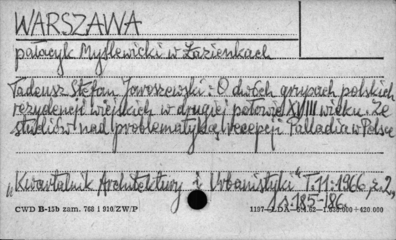 WARSZAWA
pałacyk Myślewicki w Łazienkach
Tadeusz Stefan Jaroszewski: O dwóch grupach polskich
rezydencji wiejskich w drugiej połowie XVIII wieku. Ze
studiów nad problematyką recepcji Palladia w Polsce
„Kwartalnik Architektury i Urbanistyki" T.11:1966, z.2,
s.185-186
CWD B-15b zam. 768 1 910/ZW/P